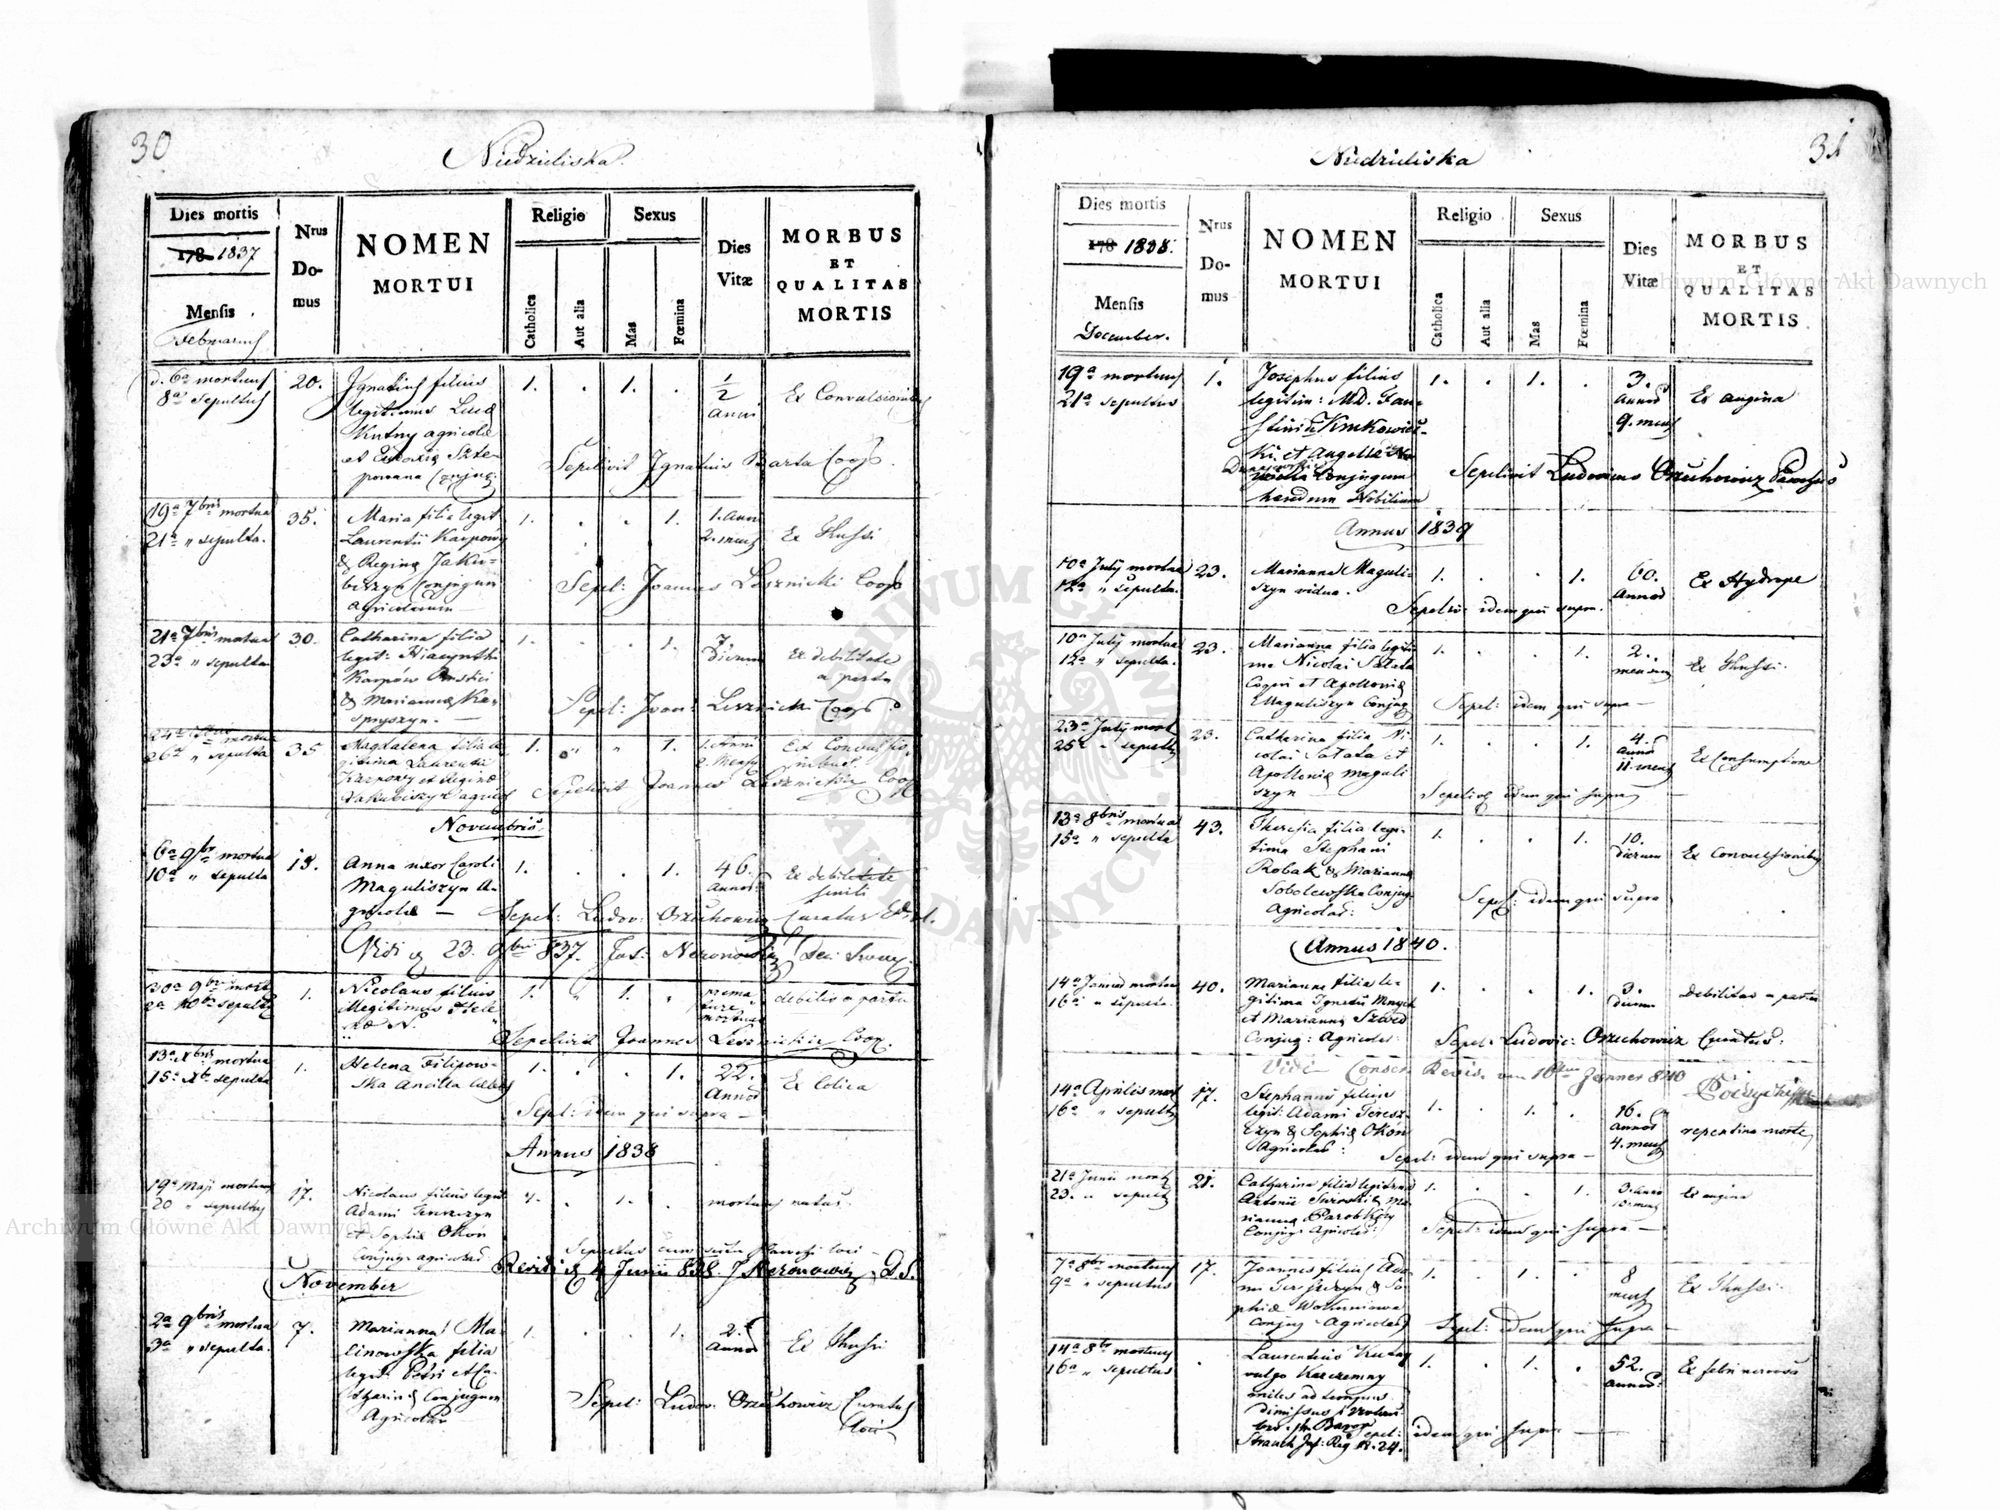 30
Niedzieliska.
Dies mortis
178 1837
Mensis
Februarius
Nrus
Do-
mus
NOMEN
MORTUI
Religio
Catholica
Aut alia
Sexus
Mas
Fœmina
Dies
Vitæ
MORBUS
ET
QUALITAS
MORTIS
d. 6a mortuus
8a sepultus
20.
Ignatius filius
legitimus Lucæ
Kutny agricolæ
et
Conjug:
1. . 1. .
1/2
Anni
Ex Convulsionibus
Sepelivit Ignatius Barta Coop.
19a 7bris mortua
21a " sepulta.
35.
Maria filia legit
Laurentii Karpowy
& Regina Jaku-
biszyn Conjugum
agricolarum
1. . . 1.
1. Anni
2. mens
Ex Thussi
Sepel: Joannes Lesznicki Coop
21a 7bris mortua
23a " sepulta
30.
Catharina filia
legit: Hiacynthi
Karpow Rustici
& Marianna Ka-
spryszyn.
1. . . 1.
7.
Dierum
Ex debilitate
a partu
Sepel: Joan: Lesznicki Coop
26a " sepulta
35
Magdalena filia le
gitima Laurentii
Karpowy et Regina
Jakubiszyn agricol
1. " " 1.
1. Anni
2. Mens
Ex Convulsio
nibus.
Sepelivit Joannes Lesznickie Coop
Novembris
6a 9br mortua
10a " sepulta
18.
Anna uxor Caroli
Maguliszyn A-
gricolæ
1. . . 1.
46.
Annor:
Ex debilitate
senili
Sepel: Ludov: Orzuchowicz Curatus
Vidi d 23. 9bris 837. Jos: Neronowicz
30a 9bris mort
2a Xbr sepult
1.
Nicolaus filius
illegitimus Hele
næ N.
1. " 1. "
prema
ture
mortuus
debilis a partu
Sepelivit Joannes Lesznickie Coop.
13a Xbris mortua
15a Xb sepulta
1.
Helena Filipow-
ska Ancilla
1. . . 1.
22.
Annor
Ex Colica
Sepel: idem qui supra
Annus 1838
19a Maji mortuus
20 " sepultus
17.
Nicolaus filius legit
Adami
et Sophia Okón
Conjug: agricolæ
1. . 1. .
mortuus natus.
Sepultus
Revidi d 4 Junii 838. J Neronowicz D.S.
November
2a 9bris mortua
3a " sepulta.
7.
Marianna Ma-
linowska filia
legit: Petri et Ca-
tharina Conjugum
Agricolar
1. . . 1.
2.
Annor
Ex Thussi
Sepel: Ludov. Orzuchowicz Curatus
Loci
31
Niedzieliska
Dies mortis
178 1838.
Mensis
December.
Nrus
Do-
mus
NOMEN
MORTUI
Religio
Catholica
Aut alia
Sexus
Mas
Fœmina
Dies
Vitæ
MORBUS
ET
QUALITAS
MORTIS
19a mortuus
21a sepultus
1.
Josephus filius
legitim: M.D. Fau-
stini Krukowiec-
ki et Angella
Conjugum
haredum Nobilium
1. . 1. .
3.
annor
9. mens
Ex angina
Sepelivit Ludovicus Orzuchowicz Parochus
Annus 1839
10a July mortua
12a " sepulta.
23.
Marianna Maguli-
szyn vidua.
1. . . 1.
60.
Annor
Ex Hydrope
Sepeliv: idem qui supra.
10a July mortua
12a " sepulta.
23.
Marianna filia legiti
ma Nicolai Salata
et Apollonia
Maguliszyn Conjug
1. . . 1.
2.
mensium
Ex Thussi.
Sepel: idem qui supra
23a July mort
25a " sepulta
23.
Catharina filia Ni
colai Salata et
Apollonia Maguli
szyn
1. . . 1.
4.
annor
11. mens
Ex Consumptione
Sepeliv idem qui supra
13a 8bris mortua
15a " sepulta
43.
Theresia filia legi-
tima Stephani
Robak & Marianna
Sobolewska Conjug
Agricolar:
1. . . 1.
10.
dierum
Ex Convulsionibus
Sepel: idem qui supra
Annus 1840.
14a Januar mortua
16a " sepulta.
40.
Marianna filia le-
gitima Ignatii Mnych
et Marianna Szwed
Conjug: Agricolar
1. . . 1.
3.
dierum
Debilitas a partu
Sepel: Ludovic: Orzuchowicz Curatus.
Vidi Conscr. Revis. am 16ten Jenner 840
14a Aprilis mort
16a " sepult
17.
Stephanus filius
legit: Adami Teresz-
czyn & Sophia Okón
Agricolar:
1. . 1. .
16.
annor
4. mens
repentina morte
Sepel: idem qui supra
21a Junii mort
23. " sepult
21.
Catharina filia legitima
Antonii Surowski & Ma
rianna Parobkowy
Conjug: Agricolar:
1. . . 1.
3. anno
10. mens
Ex angina
Sepel: idem qui supra
7a 8br mortuus
9a " sepultus
17.
Joannes filius Ada-
mi Tereszczyn & So
phia
Conjug Agricolar
1. . 1. .
8
mens
Ex Thussi.
Sepel: idem qui supra
14a 8br mortuus
16a " sepultus
Laurentius Kutny
vulgo Karczemny
miles
dimissus
Baron
Strauch Inf: Reg N. 24.
1. . 1. .
52.
annor:
Ex febri nervosa
Sepel: idem qui supra
ARCHIWUM GŁÓWNE AKT DAWNYCH
Archiwum Główne Akt Dawnych
Archiwum Główne Akt Dawnych